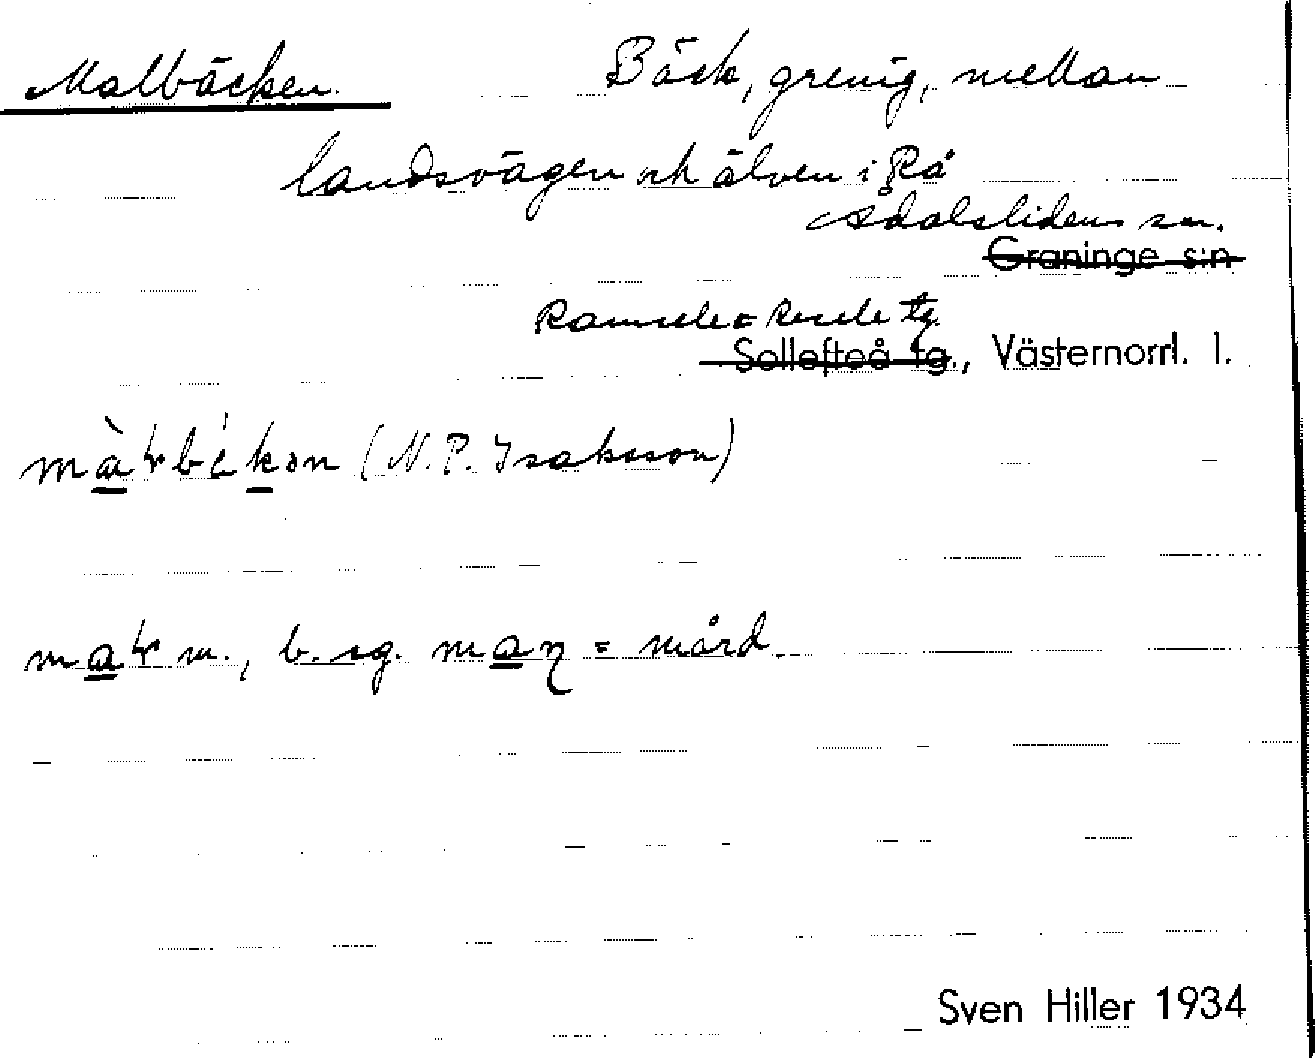 Malbäcken. Bäck, grenig, mellan
landsvägen och älven i Rå
Ådalslidens sn.
Graninge s:n
Ramsele o Resele tg
Sollefteå tg., Västernorrl. l.
(N.P. Isaksson)
m., b. sg. = mård.
Sven Hiller 1934